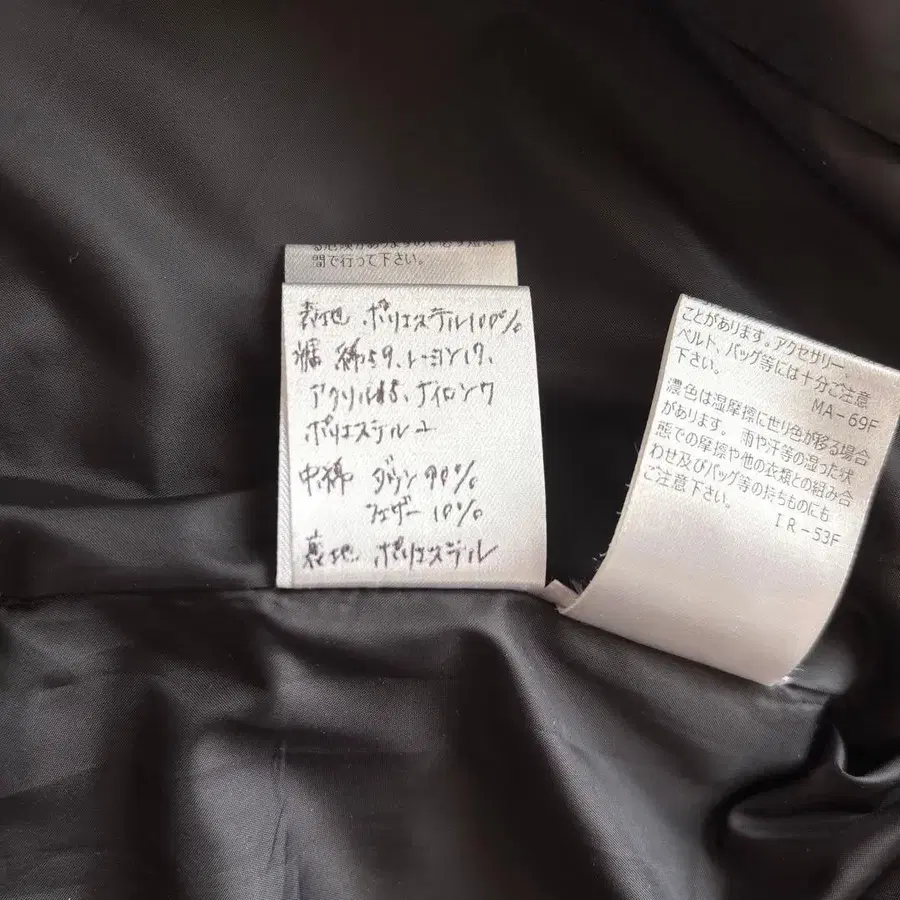 間で行って下さい。
表地 ポリエステル100%
裾 綿59、レーヨン17、
アクリル15、ナイロン7
ポリエステル2
中綿 ダウン90%
フェザー10%
裏地 ポリエステル
ことがあります。アクセサリー、
ベルト、バッグ等には十分ご注意
下さい。
MA-69F
濃色は湿摩擦により色が移る場合
があります。雨や汗等の湿った状
態での摩擦や他の衣類との組み合
わせ及びバッグ等の持ちものにも
ご注意下さい。
IR-53F